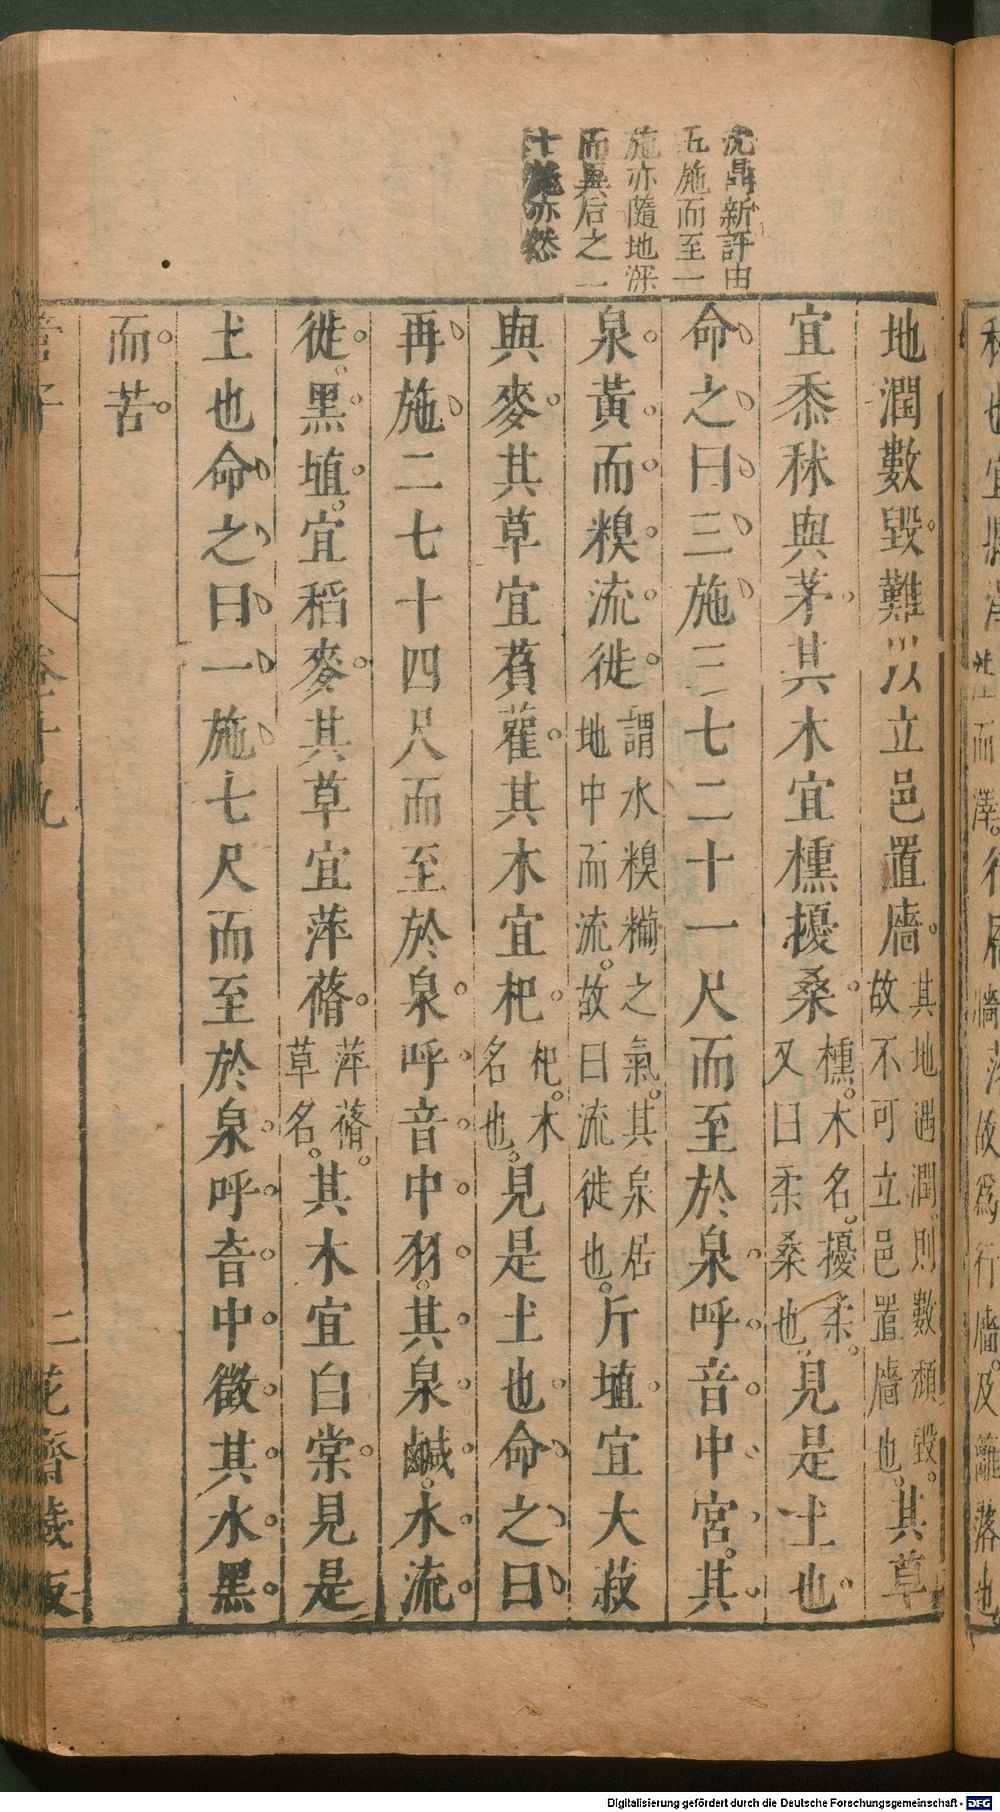 沈鼎新評由
五施而至一
施亦隨地深
而異后之一
十施亦然
地潤數毀難以立邑置廧其地遇潤則數頹毀故不可立邑置廧也其草
宜黍秫與茅其木宜櫄擾桑櫄木名擾柔又曰柔桑也見是土也
命之曰三施三七二十一尺而至於泉呼音中宮其
泉黃而糗流徙謂水糗糒之氣其泉居地中而流故曰流徙也斥埴宜大菽
與麥其草宜萯雚其木宜杞杞木名也見是土也命之曰
再施二七十四尺而至於泉呼音中羽其泉鹹水流
徙黑埴宜稻麥其草宜萍蓨萍蓨草名其木宜白棠見是
土也命之曰一施七尺而至於泉呼音中徵其水黑
而苦
管子 卷十九 二 花齋藏板
Digitalisierung gefördert durch die Deutsche Forschungsgemeinschaft - DFG